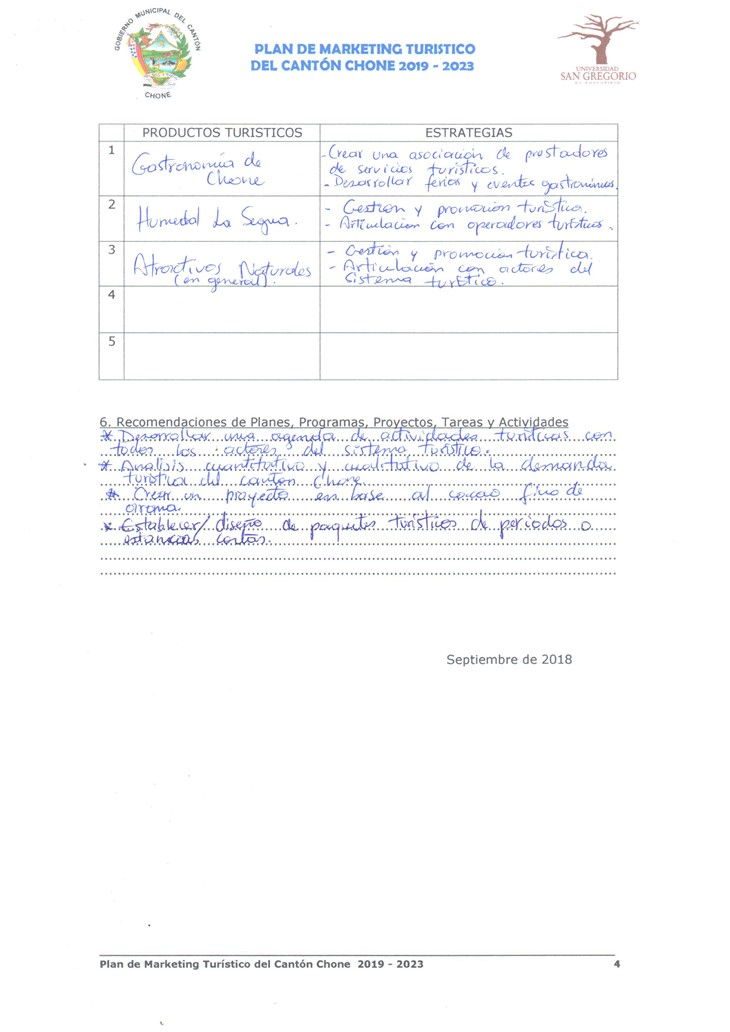 GOBIERNO MUNICIPAL DEL CANTÓN
CHONE
PLAN DE MARKETING TURISTICO
DEL CANTÓN CHONE 2019 - 2023
UNIVERSIDAD
SAN GREGORIO
PRODUCTOS TURISTICOS ESTRATEGIAS
1 Gastronomía de Chone
- Crear una asociación de prestadores
de servicios turísticos.
- Desarrollar ferias y eventos gastronómicos.
2 Humedal La Segua.
- Gestión y promoción turística.
- Articulación con operadores turísticos.
3 Atractivos Naturales
(en general).
- Gestión y promoción turística.
- Articulación con actores del
sistema turístico.
4
5
6. Recomendaciones de Planes, Programas, Proyectos, Tareas y Actividades
* Desarrollar una agenda de actividades turísticas con
todos los actores del sistema turístico.
* Analisis cuantitativo y cualitativo de la demanda
turística del cantón Chone.
* Crear un proyecto en base al cacao fino de
aroma.
* Establecer/diseño de paquetes turísticos de periodos o
estancias cortas.
Septiembre de 2018
Plan de Marketing Turístico del Cantón Chone 2019 - 2023 4